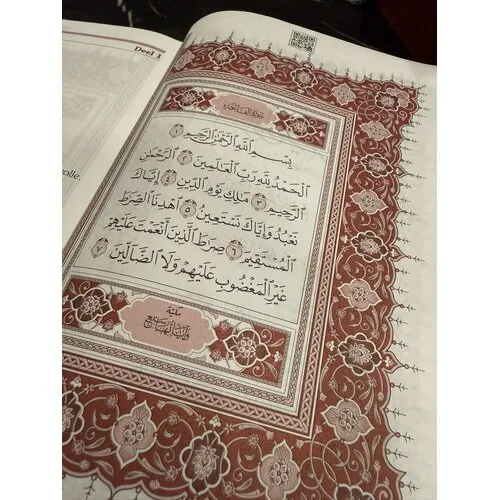 Deel 1
سورة الفاتحة
بِسْمِ ٱللَّهِ ٱلرَّحْمَٰنِ ٱلرَّحِيمِ ١
ٱلْحَمْدُ لِلَّهِ رَبِّ ٱلْعَٰلَمِينَ ٢ ٱلرَّحْمَٰنِ
ٱلرَّحِيمِ ٣ مَٰلِكِ يَوْمِ ٱلدِّينِ ٤ إِيَّاكَ
نَعْبُدُ وَإِيَّاكَ نَسْتَعِينُ ٥ ٱهْدِنَا ٱلصِّرَٰطَ
ٱلْمُسْتَقِيمَ ٦ صِرَٰطَ ٱلَّذِينَ أَنْعَمْتَ عَلَيْهِمْ
غَيْرِ ٱلْمَغْضُوبِ عَلَيْهِمْ وَلَا ٱلضَّآلِّينَ ٧
مكية
وآياتها سبع